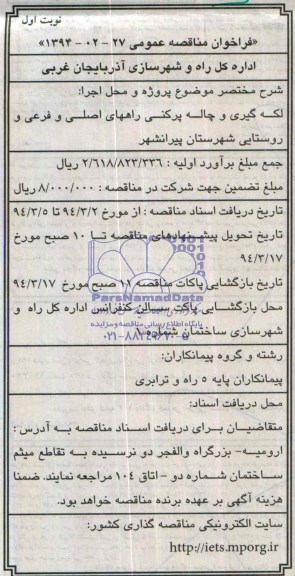 نوبت اول
«فراخوان مناقصه عمومی ۲۷ - ۰۲ - ۱۳۹۴»
اداره کل راه و شهرسازی آذربایجان غربی
شرح مختصر موضوع پروژه و محل اجرا:
لکه گیری و چاله پرکنی راههای اصلی و فرعی و
روستایی شهرستان پیرانشهر
جمع مبلغ برآورد اولیه : ۲/۶۱۸/۸۲۳/۳۳۶ ریال
مبلغ تضمین جهت شرکت در مناقصه : ۸/۰۰۰/۰۰۰ ریال
تاریخ دریافت اسناد مناقصه : از مورخ ۹۴/۳/۲ تا ۹۴/۳/۵
تاریخ تحویل پیشنهادهای مناقصه تا ۱۰ صبح مورخ
۹۴/۳/۱۷
تاریخ بازگشایی پاکات مناقصه ۱۱ صبح مورخ ۹۴/۳/۱۷
ParsNamadData
محل بازگشایی پاکت سالن کنفرانس اداره کل راه و
پایگاه اطلاع رسانی مناقصه و مزایده
شهرسازی ساختمان شماره ۱
۰۲۱-۸۸۳۴۹۶۷۰-۵
رشته و گروه پیمانکاران:
پیمانکاران پایه ۵ راه و ترابری
محل دریافت اسناد:
متقاضیان برای دریافت اسناد مناقصه به آدرس:
ارومیه- بزرگراه والفجر دو نرسیده به تقاطع میثم
ساختمان شماره دو - اتاق ۱۰۴ مراجعه نمایند. ضمنا
هزینه آگهی بر عهده برنده مناقصه خواهد بود.
سایت الکترونیکی مناقصه گذاری کشور:
http://iets.mporg.ir